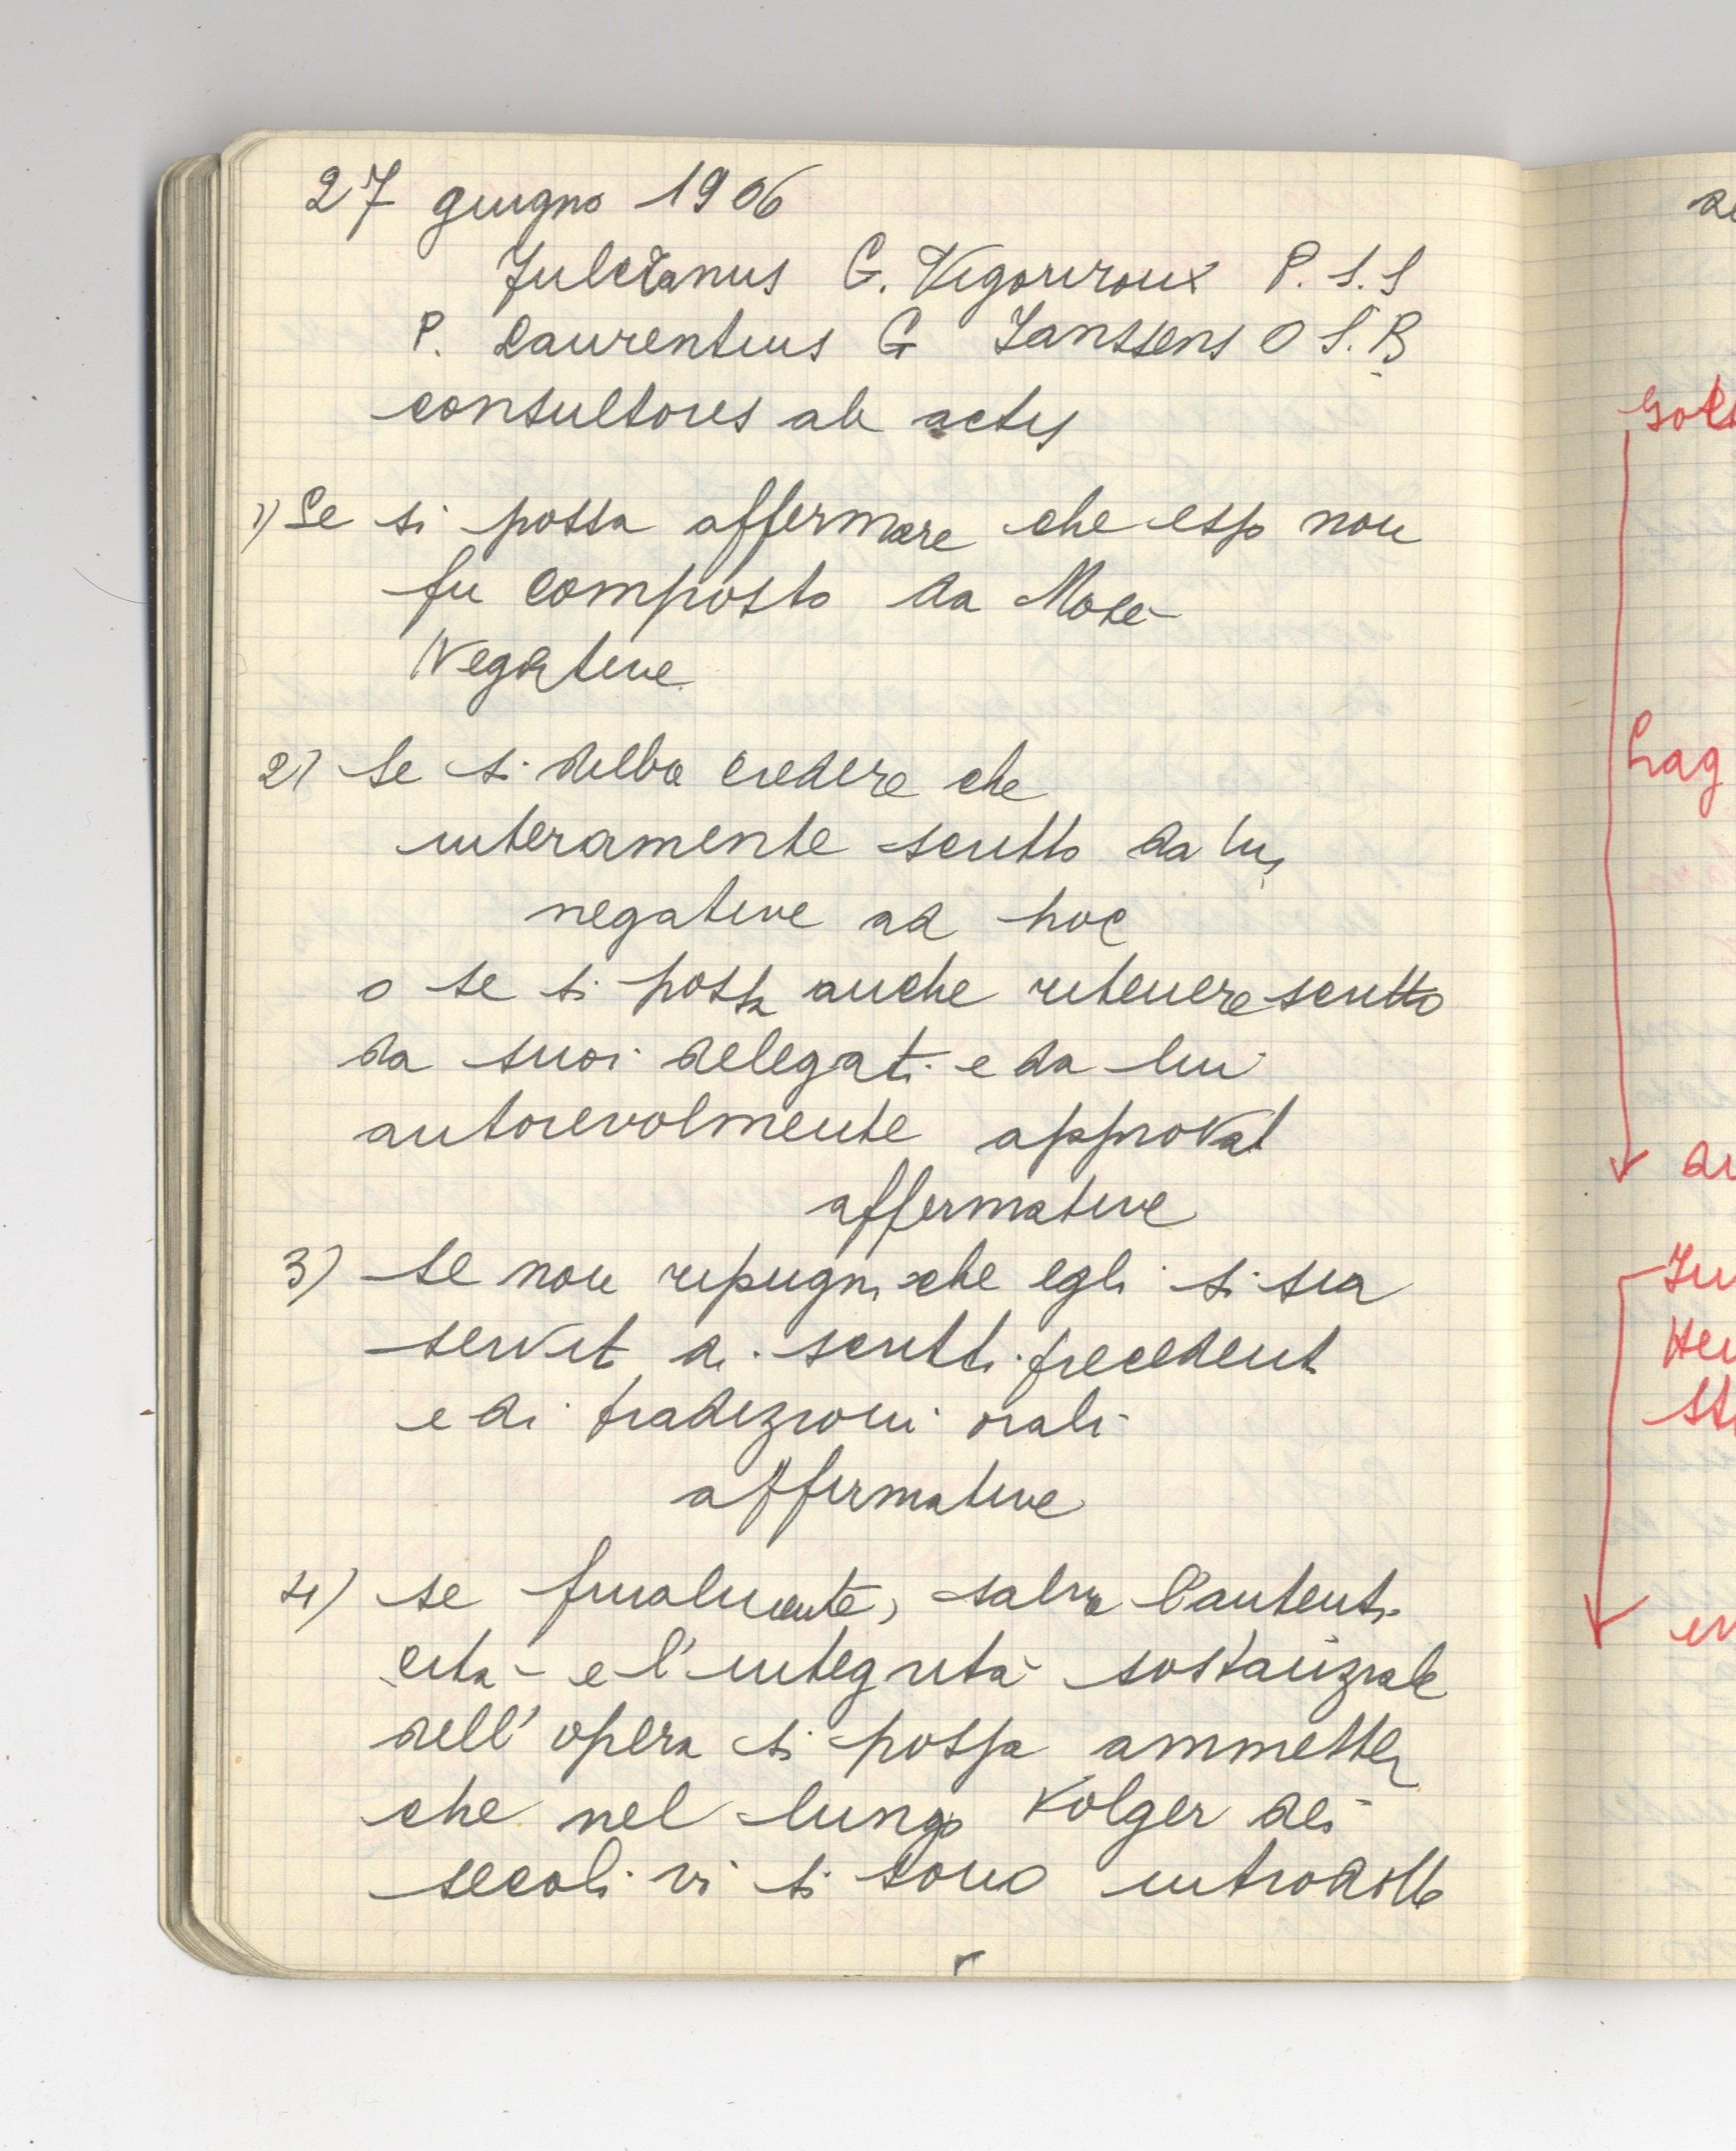 27 giugno 1906
Fulcranus G. Vigouroux P. S. S
P. Laurentius G Janssens O S. B
consultores ab actis
1) Se si possa affermare che esso non
fu composto da Mosè
Negative
2) Se si debba credere che
interamente scritto da lui
negative ad hoc
o se si possa anche ritenere scritto
da suoi delegati e da lui
autorevolmente approvat
affermative
3) se non ripugni che egli si sia
servit di scritti precedent
e di tradizioni orali
affirmative
4) se finalmente, salva l'autenti
cità e l'integrità sostanziale
dell' opera si possa ammetter
che nel lungo volger dei
secoli vi si sono introdotte
Gol
Lag